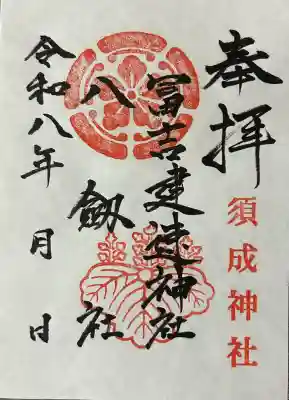 奉拝
須成神社
冨吉建速神社
八劔社
令和八年 月 日